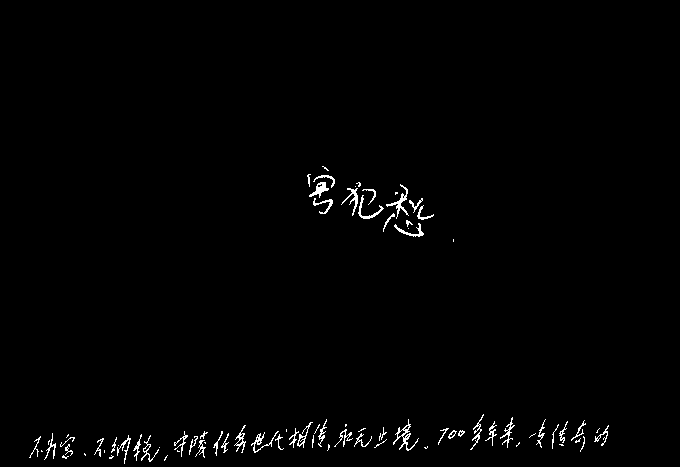 害犯愁
不为官、不纳税,守陵任务世代相传,永无止境。700多年来,支传奇的